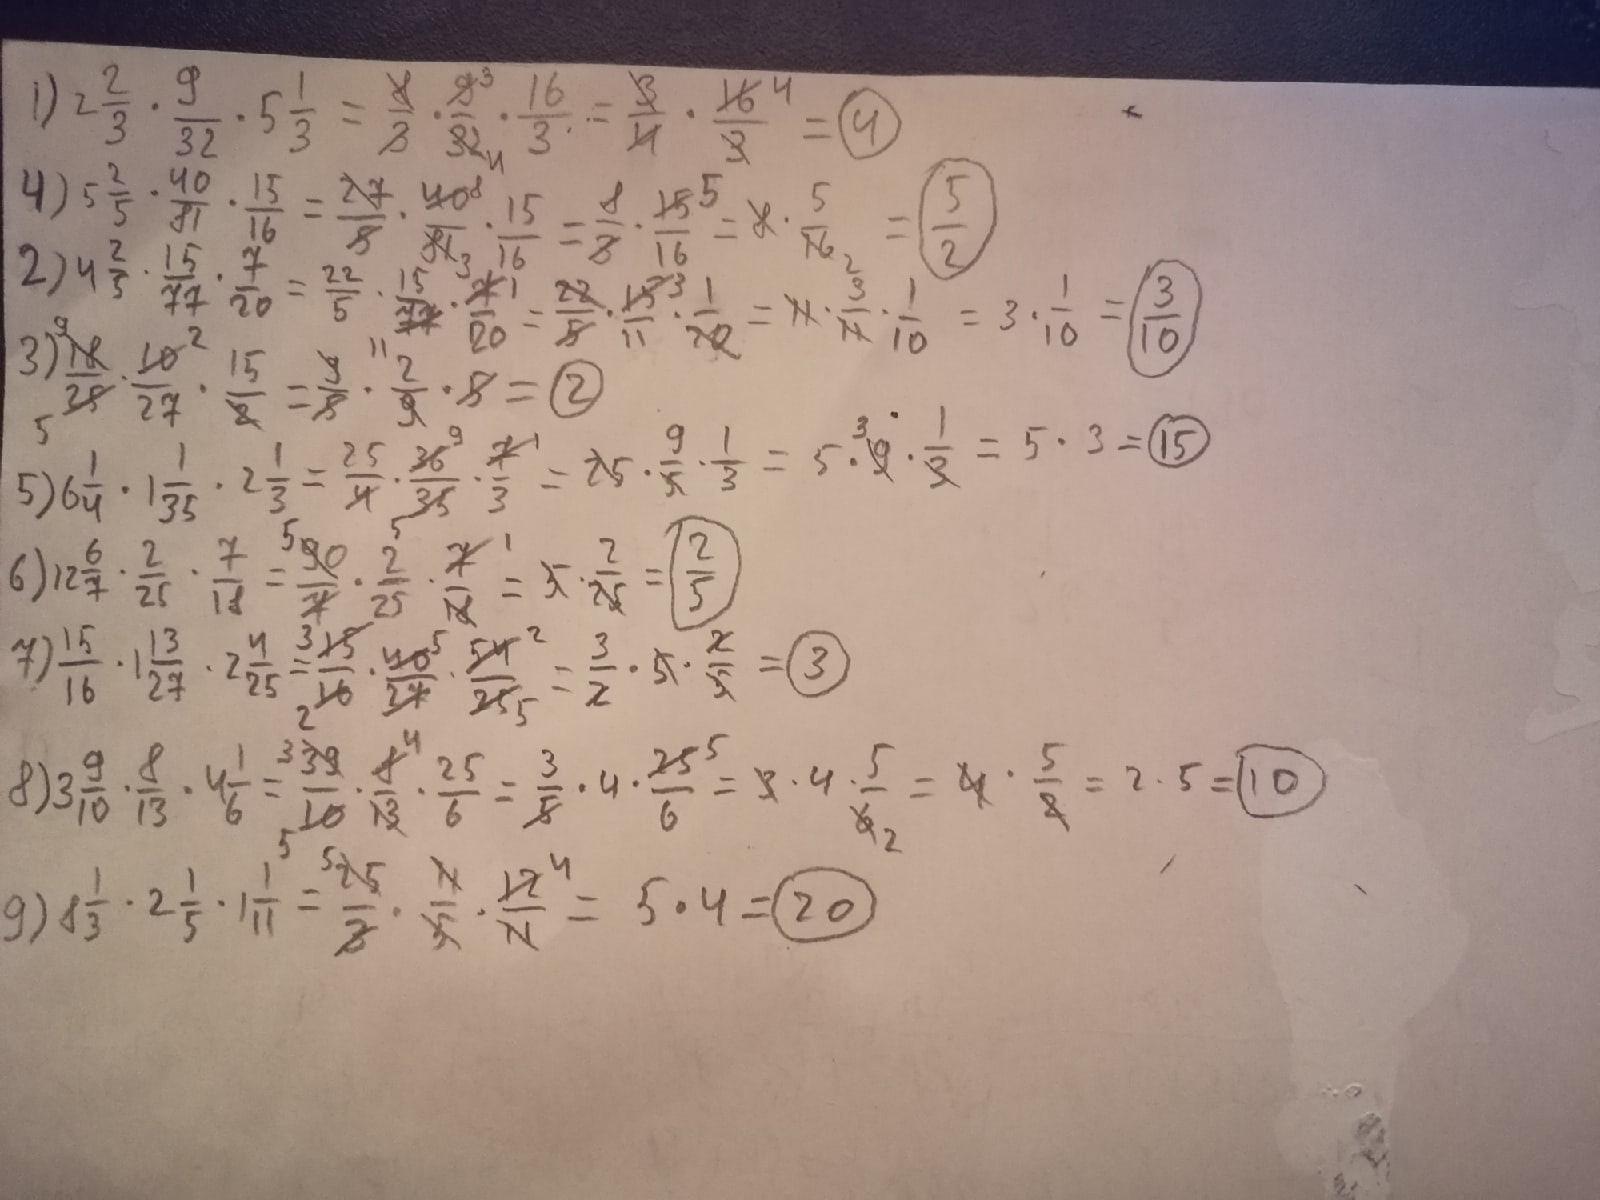 1) 2 2/3 · 9/32 · 5 1/3 = 8/3 · 9 3/32 4 · 16/3 = 3/4 · 16 4/3 = 4
4) 5 2/5 · 40/81 · 15/16 = 27/5 · 40 8/81 3 · 15/16 = 8/3 · 15 5/16 = 8 · 5/16 2 = 5/2
2) 4 2/5 · 15/77 · 7/20 = 22/5 · 15/77 11 · 7 1/20 = 22/5 · 15 3/11 · 1/20 = 11 · 3/11 · 1/10 = 3 · 1/10 = 3/10
3) 9 18/25 5 · 10 2/27 · 15/2 = 9/5 · 2/9 · 5 = 2
5) 6 1/4 · 1 1/35 · 2 1/3 = 25/4 · 36 9/35 · 7 1/3 = 25 · 9/5 · 1/3 = 5 · 9 3 · 1/3 = 5 · 3 = 15
6) 12 6/7 · 2/25 · 7/18 = 5 90/7 · 2/25 · 7 1/18 = 5 · 2/25 5 = 2/5
7) 15/16 · 1 13/27 · 2 4/25 = 3 15/16 2 · 40 5/27 · 54 2/25 5 = 3/2 · 5 · 2/5 = 3
8) 3 9/10 · 8/13 · 4 1/6 = 3 39/10 5 · 8 4/13 · 25/6 = 3/5 · 4 · 25 5/6 = 3 · 4 · 5/6 2 = 4 · 5/2 = 2 · 5 = 10
9) 8 1/3 · 2 1/5 · 1 1/11 = 5 25/3 · 11/5 · 12 4/11 = 5 · 4 = 20